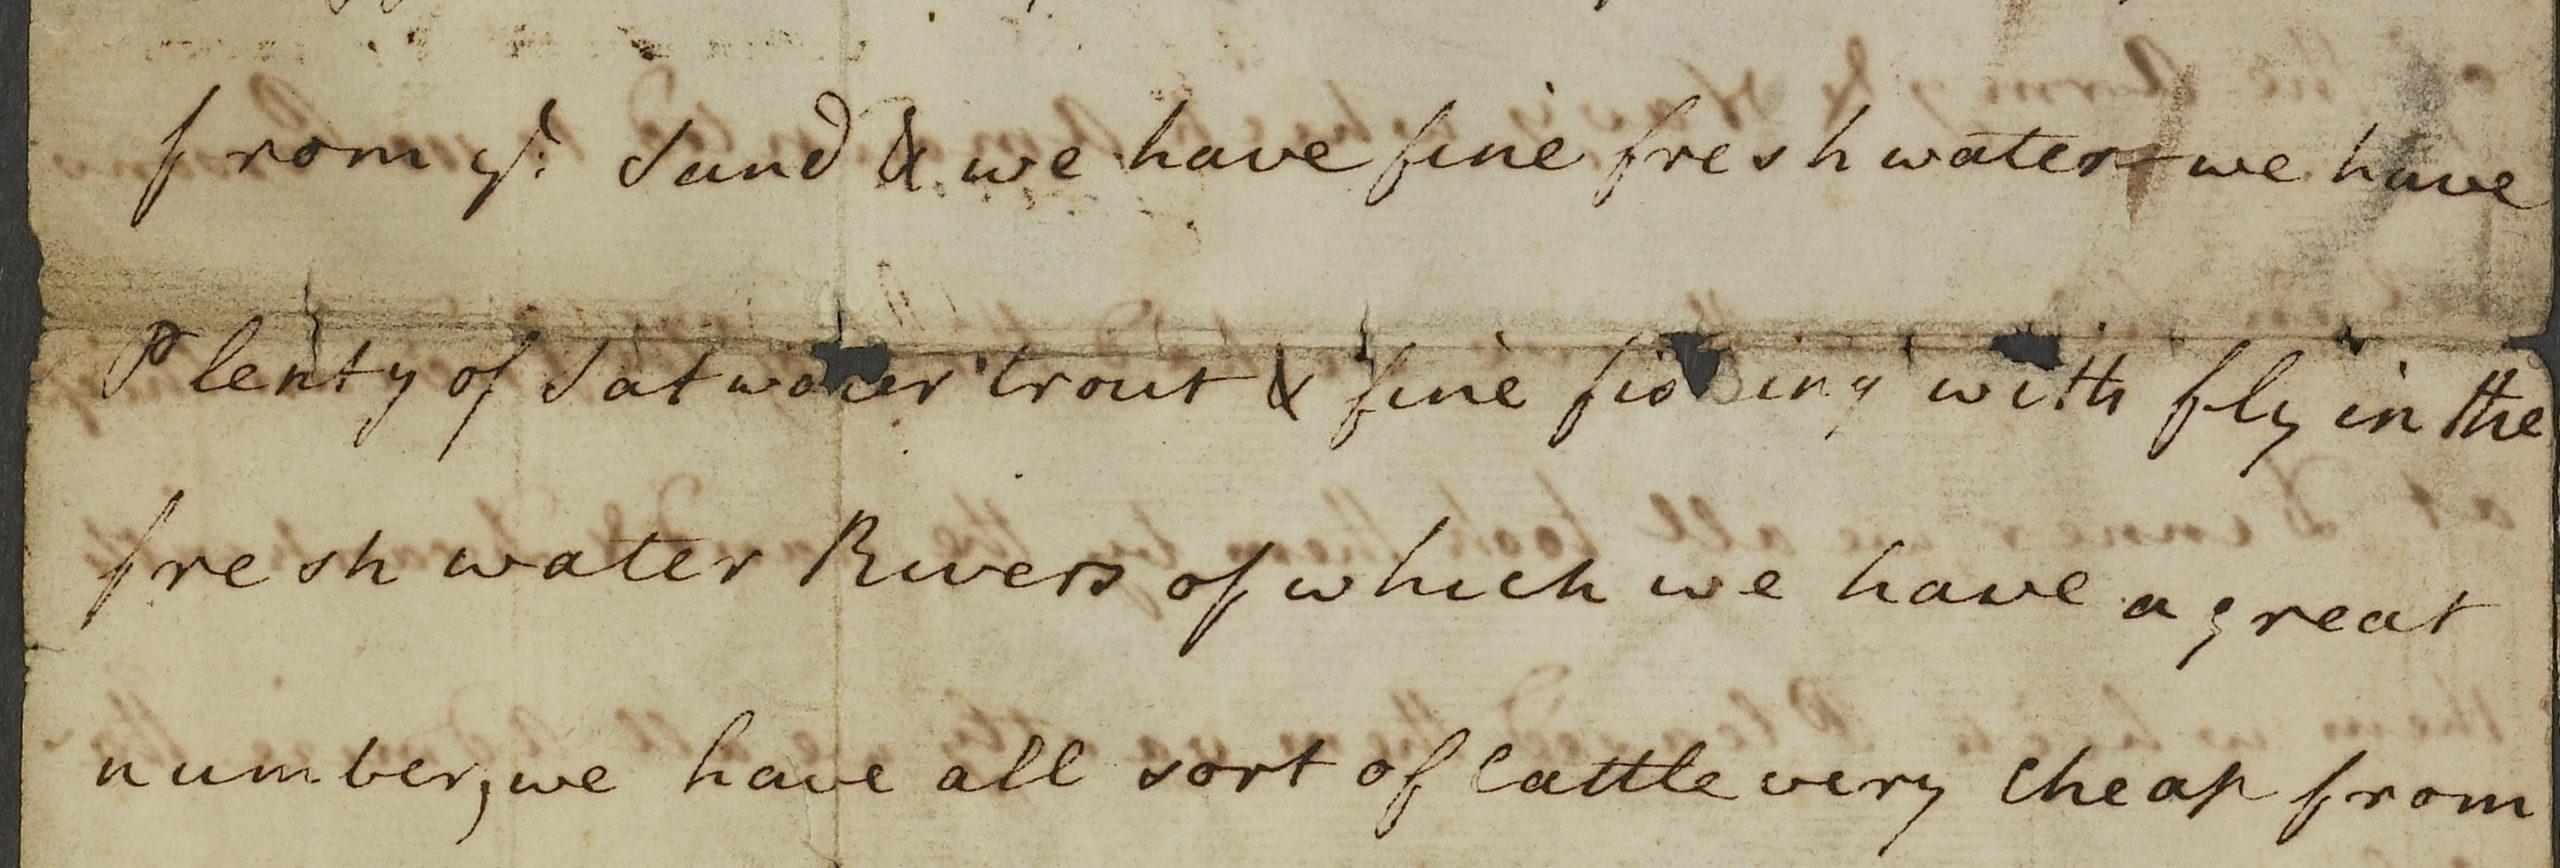 from yr. Sand & we have fine fresh water we have
Plenty of Satwater trout & fine fishing with fly in the
fresh water Rivers of which we have a great
number, we have all sort of Cattle very Cheap from